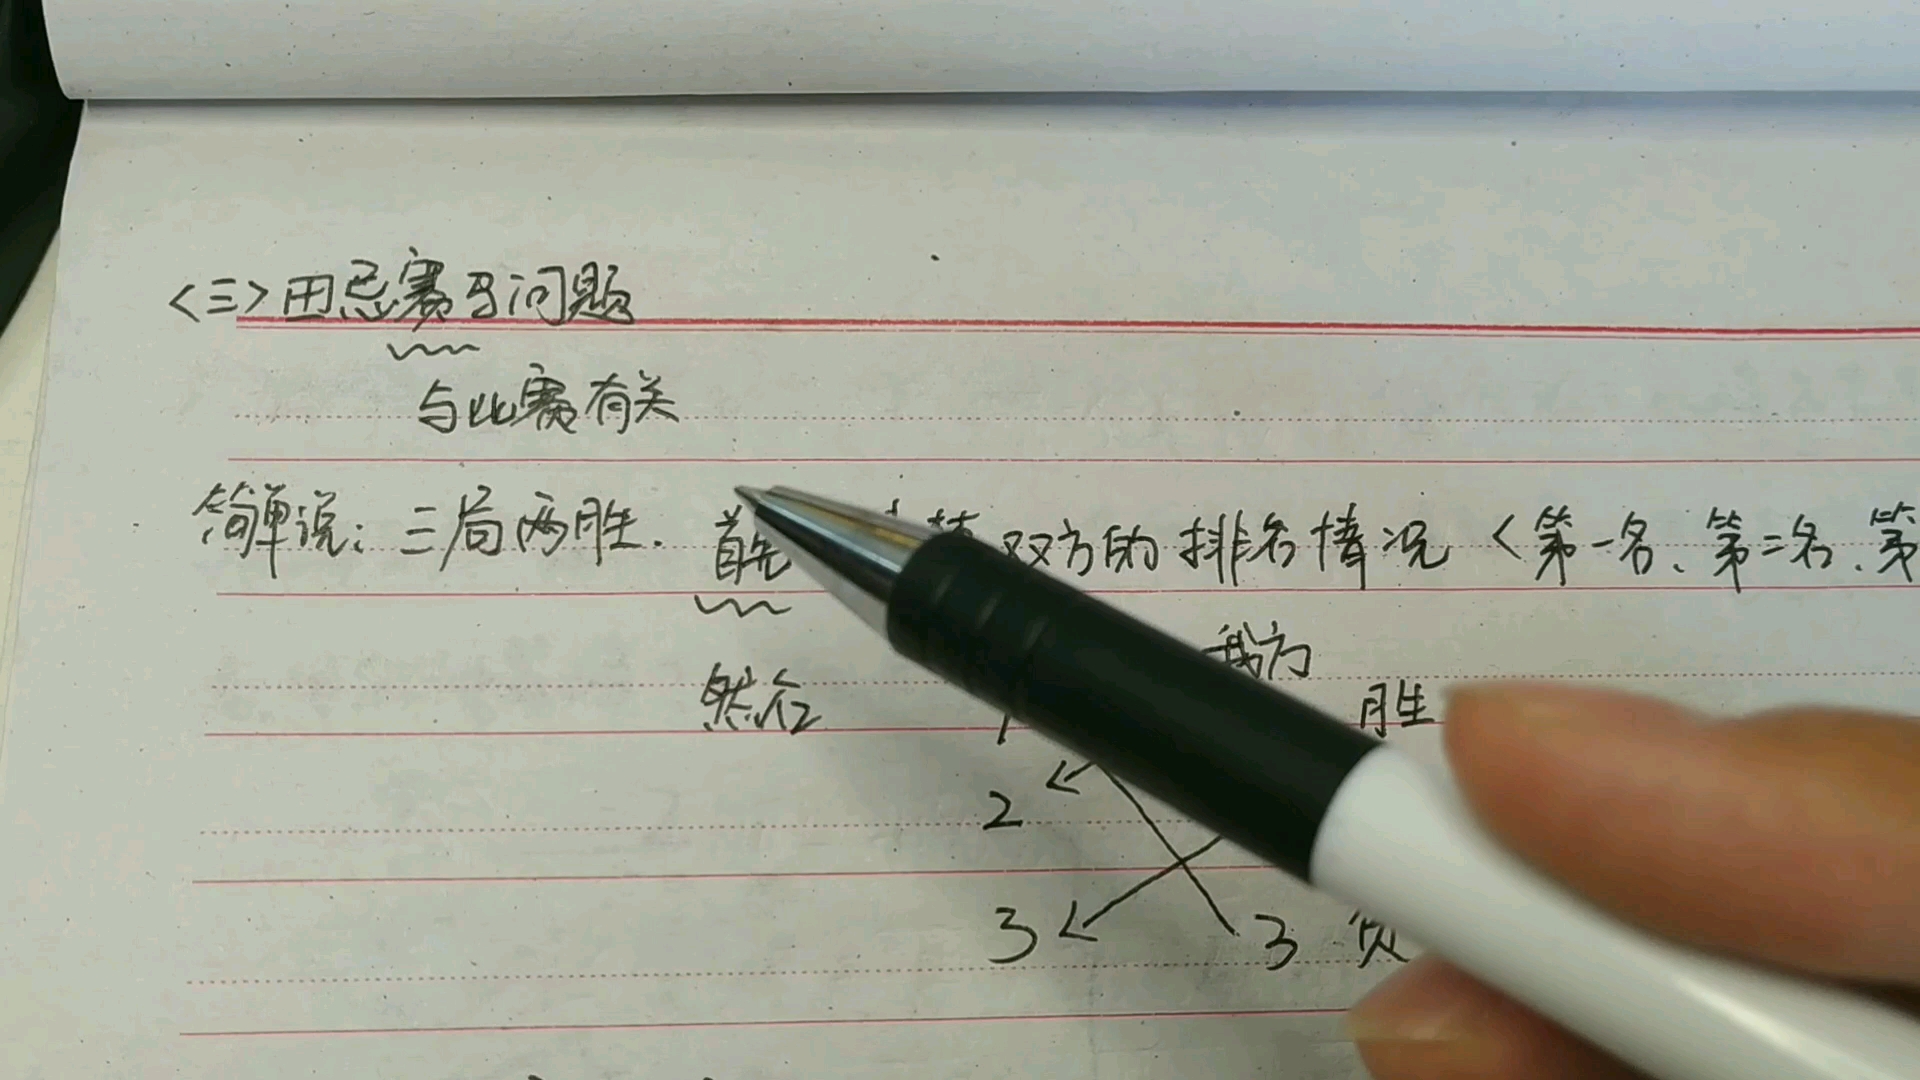 <三>田忌赛马问题
与比赛有关
简单说：三局两胜. 首先 双方的排名情况 <第一名、第二名、第
我方
然后 1 胜
2
3 3 负